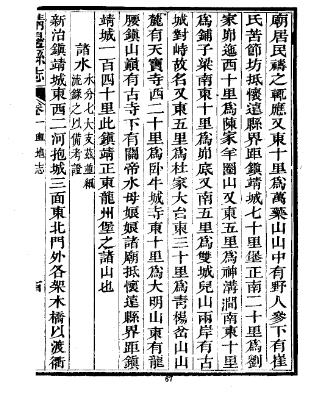 廟居民禱之輒應又東十里爲萬藥山山中有野人參下有崔
氏苦節坊抵懷遠縣界距鎮靖城七十里堡正南二十里爲劉
家峁迤西十里爲陳家羊圈山又東五里爲神溝澗南東十里
爲鋪子梁南東十里爲峁底又南五里爲雙城兒山兩岸有古
城對峙故名又東五里爲杜家大台東三十里爲靑楊岔山山
麓有天寶寺西二十里爲臥牛城寺東十里爲大明山東有龍
腰鎮山巔有古寺下有關帝水母娘娘諸廟抵懷遠縣界距鎮
靖城一百四十里此鎮靖正東龍州堡之諸山也
諸水 水分七大支茲並細
流錄之以備考證
新治鎮靖城東西二河抱城三面東北門外各架木橋以渡衝
靖邊縣志
卷一
輿地志
67